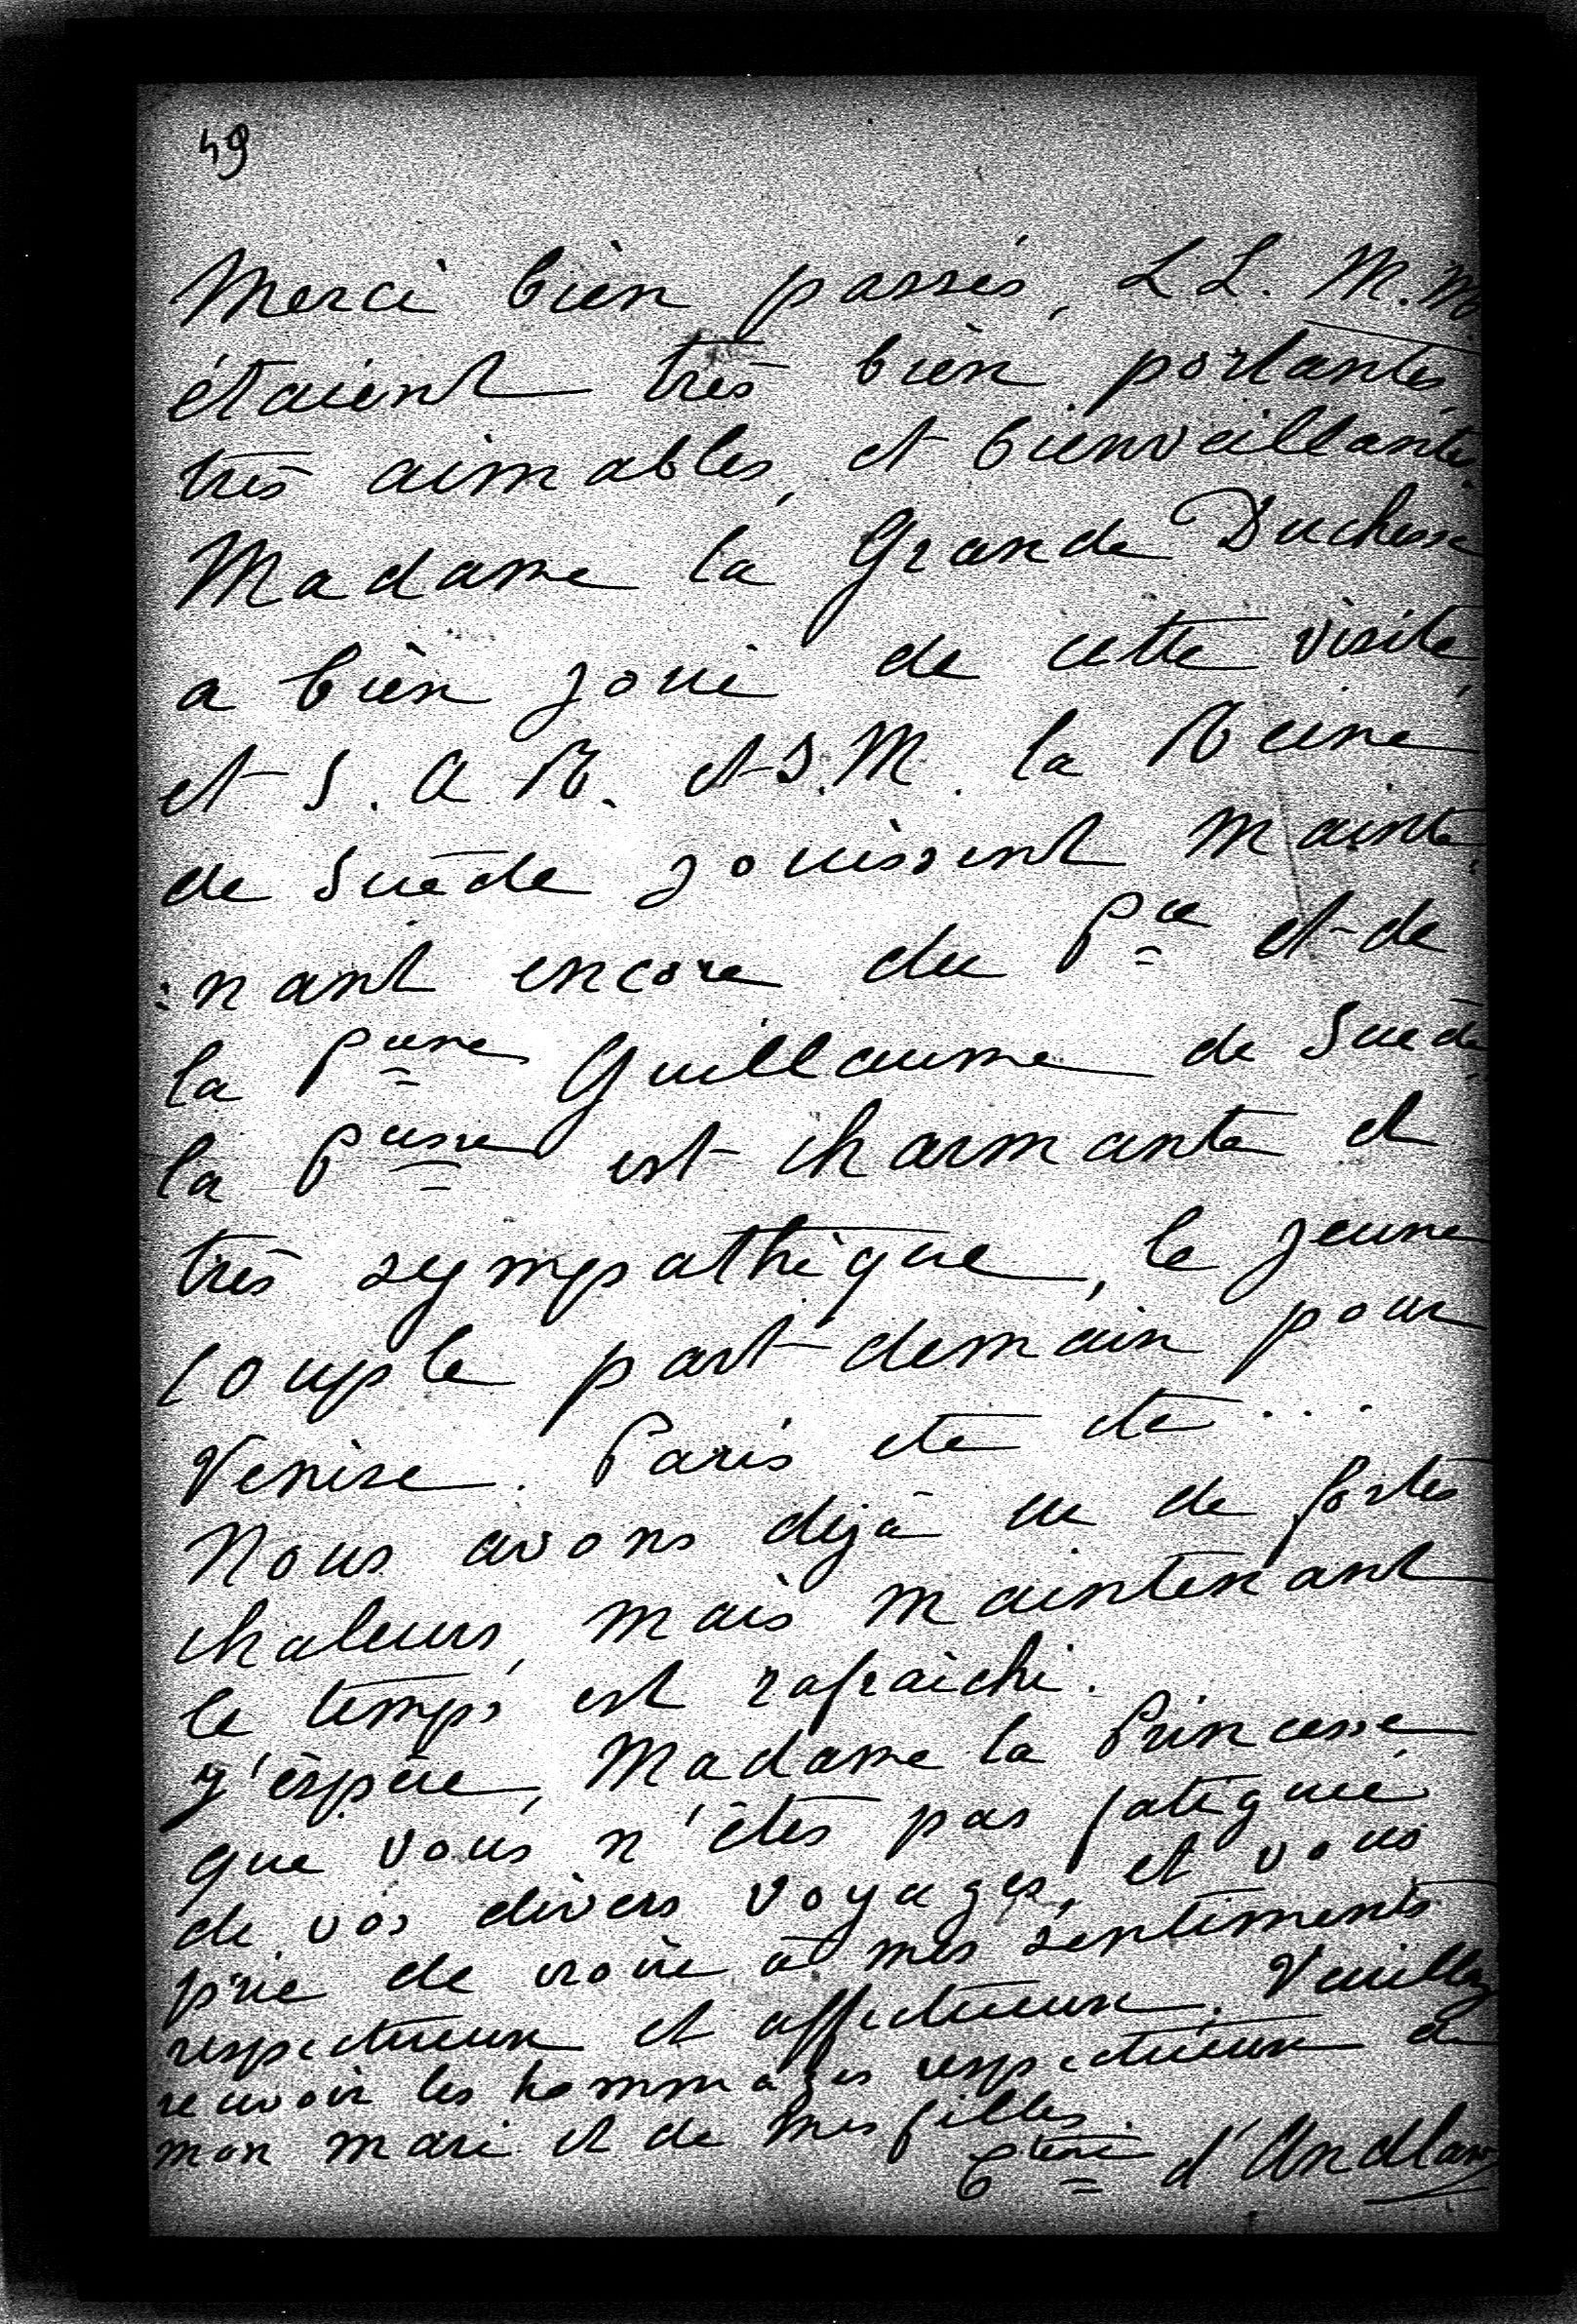 49
Merci bien passés, LL. M.M
étaient très bien portantes,
très aimables, et bienveillantes.
Madame la Grande Duchesse
a bien joui de cette visite,
et S. A. R. et S. M. la Reine
de Suède jouissent mainte:
:nant encore du Pce et de
la Pcesse Guillaume de Suède,
la Pcesse est charmante et
très sympathique, le jeune
couple part demain pour
Venise. Paris etc etc ...
Nous avons déjà eu de fortes
chaleurs, mais maintenant
le temps est rafraichi.
J'espère, Madame la Princesse
que vous n'êtes pas fatiguée
de vos divers voyages, et vous
prie de croire à mes sentiments
respectueux et affectueux. Veuillez
recevoir les hommages respectueux de
mon mari et de mes filles.
Ctesse d'Andlaw